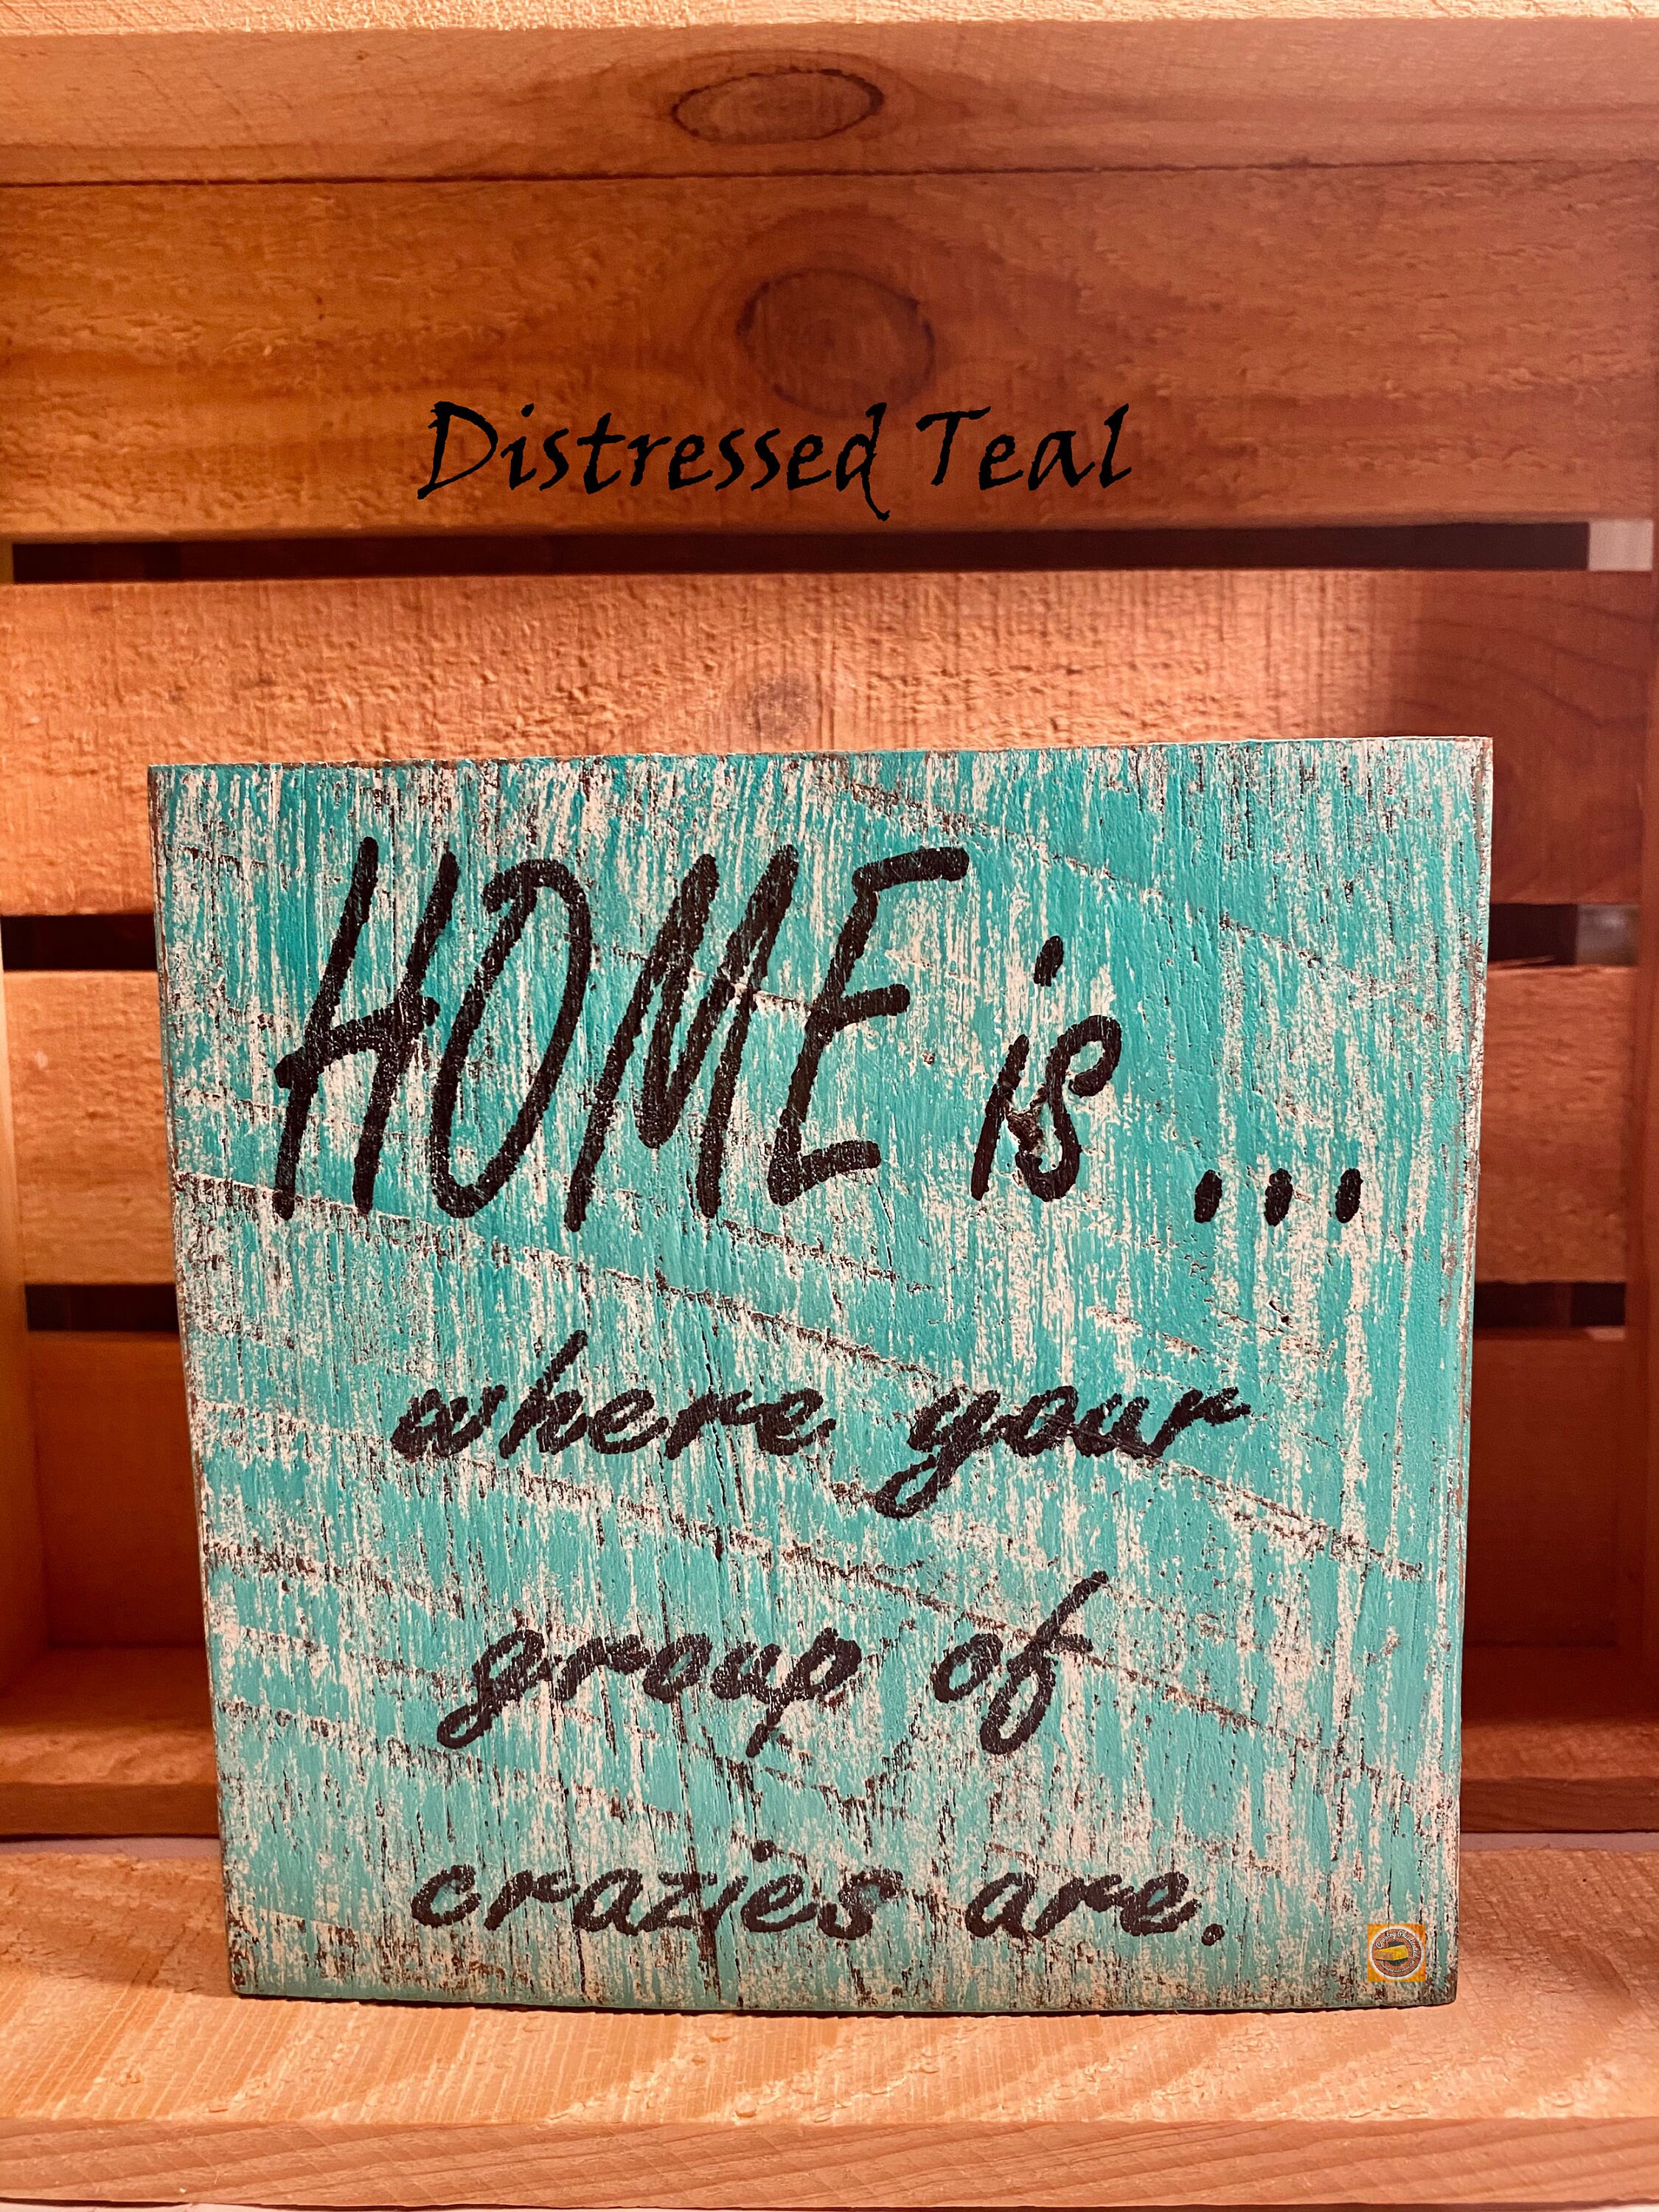 Distressed Teal
HOME is ...
where your
group of
crazies are.